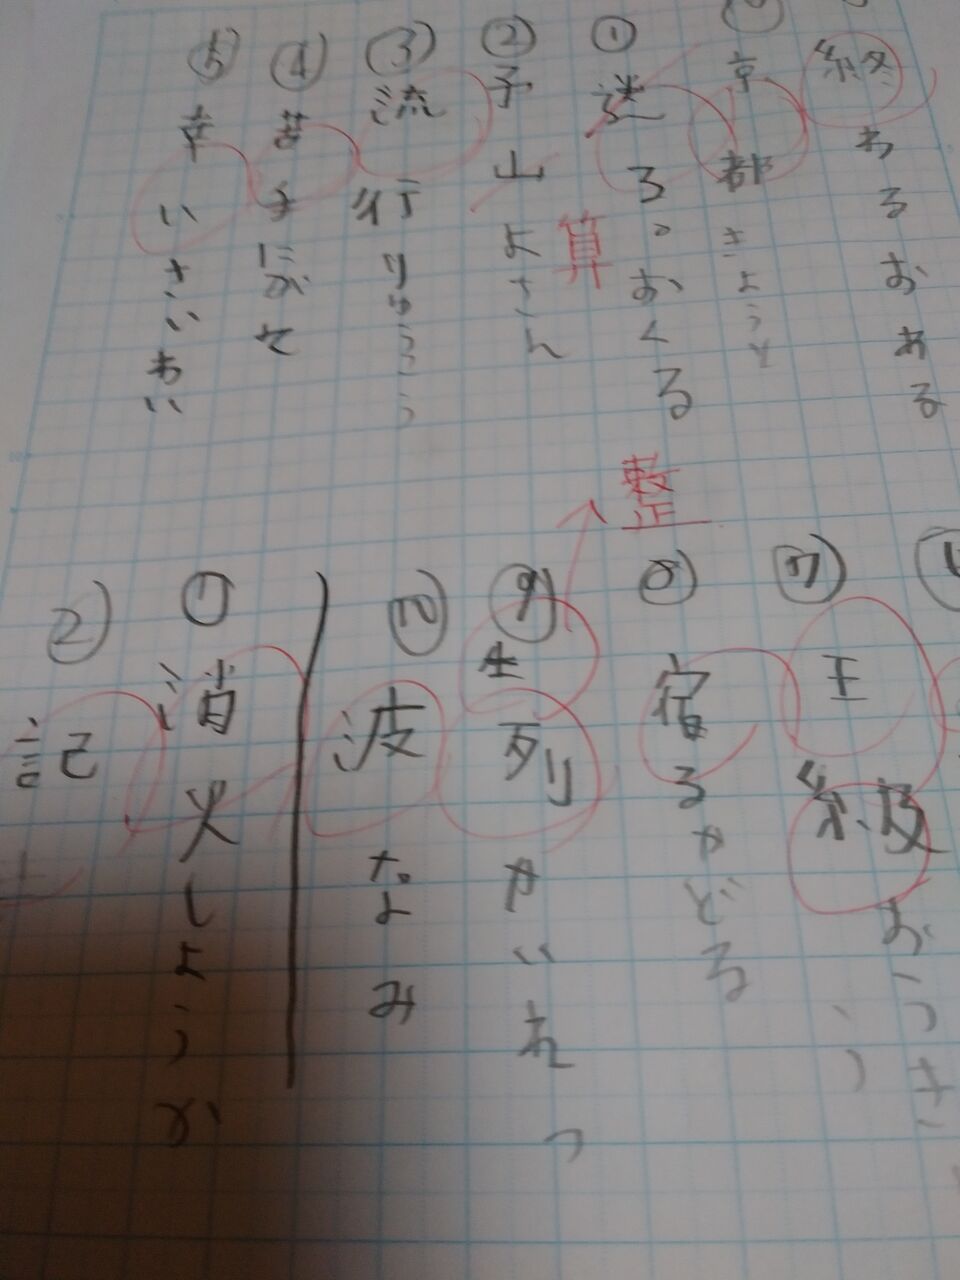 終わるおある
京都きょうと
①送るおくる
②予山よさん
算
③流行りゅうこう
④苦手にがて
⑤幸いさいわい
整
⑦王級おうきゅう
⑧宿るやどる
⑨生列やいれつ
⑩波なみ
①消火しようか
②記